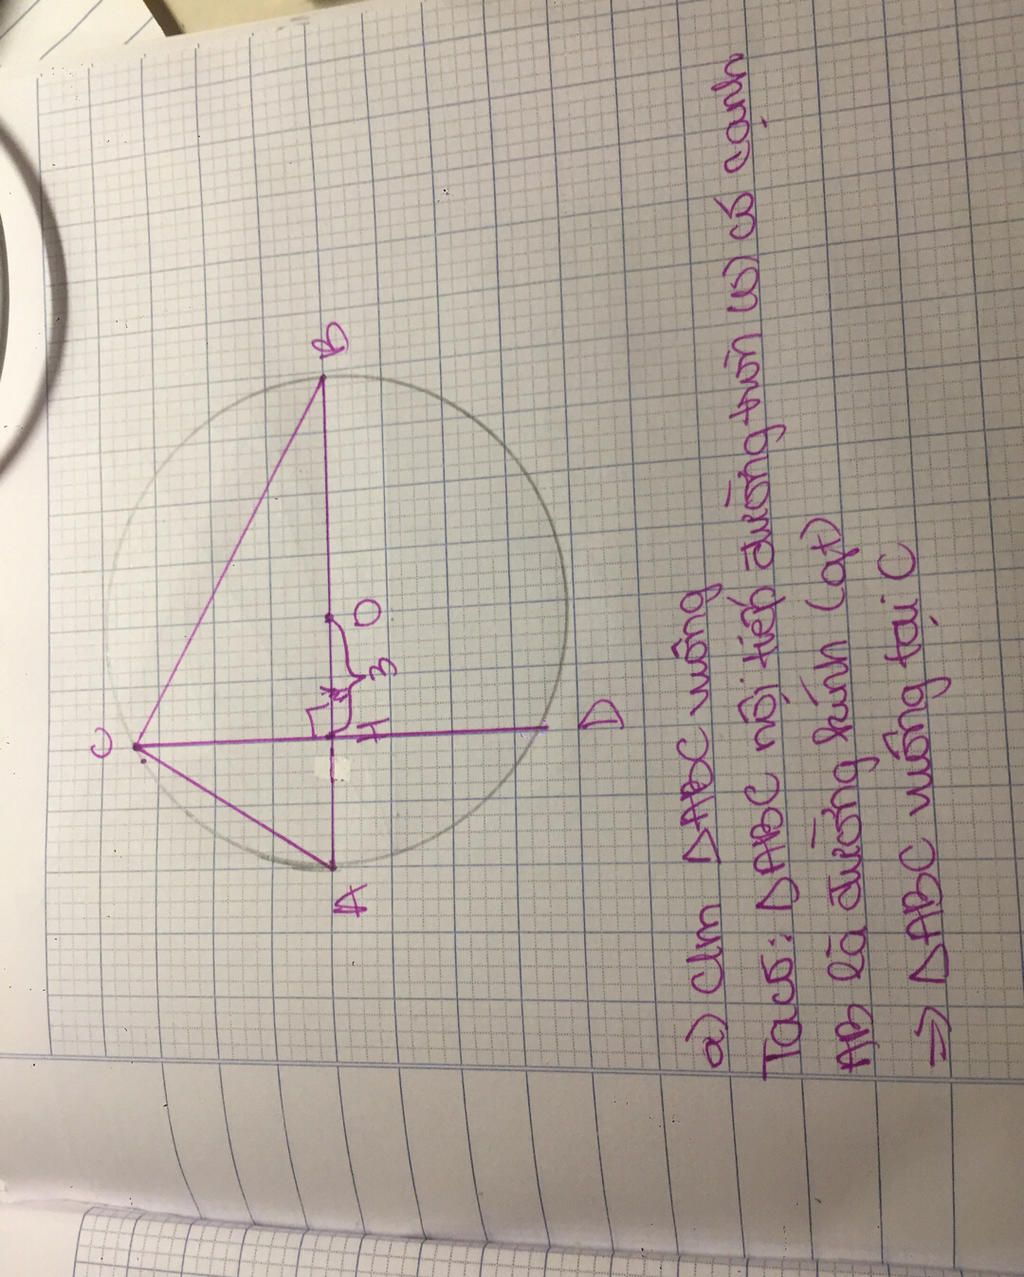 C
A
H
3
O
B
D
a) Clm ΔABC vuông
Ta có: ΔABC nội tiếp đường tròn (O) có cạnh
AB là đường kính (gt)
=> ΔABC vuông tại C